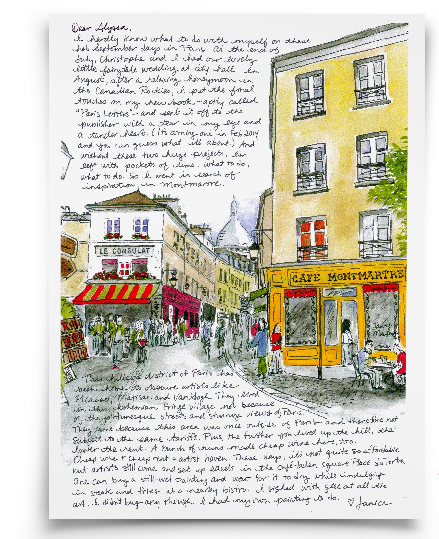 Dear Alyssa,
I hardly know what to do with myself on these
hot September days in Paris. At the end of
July, Christophe and I had our lovely
little fairytale wedding at city hall. In
August, after a relaxing honeymoon in
the Canadian Rockies, I put the final
touches on my new book - aptly called
"Paris Letters" - and sent it off to the
publisher with a tear in my eye and
a tender heart. (It's coming out in Feb 2014
and you can guess what it's about.) And
without these two huge projects, I'm
left with pockets of time. What to do,
what to do. So I went in search of
inspiration in Montmartre.
LE CONSULAT
CAFE MONTMARTRE
This hillside district of Paris has
been home to obscure artists like
Picasso, Matisse and Van Gogh. They lived
in this bohemian fringe village not because
of the picturesque streets and strange views of Paris.
They came because this area was once outside of Paris and therefore not
subject to the same tariffs. Plus, the further you lived up the hill, the
lower the rent. A bunch of nuns made cheap wine here, too.
Cheap wine + cheap rent = artist haven. These days, it's not quite so affordable
but artists still come and set up easels in the café-laden square Place du Tertre.
One can buy a still-wet painting and wait for it to dry while indulging
in steak and frites at a nearby bistro. I sighed with glee at all the
art. I didn't buy any though. I had my own painting to do.
♡ Janice